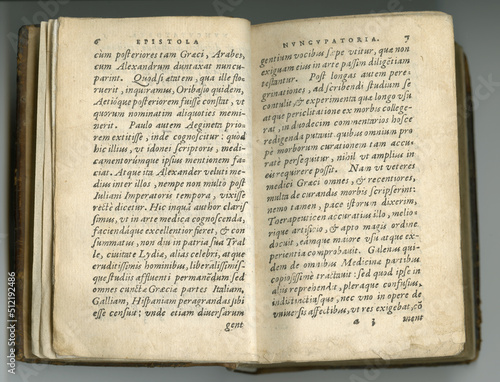 6 EPISTOLA
cum posteriores tam Græci, Arabes,
cum Alexandrum duntaxat nuncu-
parint. Quòd si ætatem, qua ille flo-
ruerit, inquiramus, Oribasio quidem,
Aetióque posteriorem fuisse constat, vt
quorum nominatim aliquoties memi-
nerit. Paulo autem Aegineta prio-
rem extitisse, inde cognoscitur: quòd
hic illius, vt idonei scriptoris, medi-
camentorúmque ipsius mentionem fa-
ciat. Atque ita Alexander veluti me-
dius inter illos, nempe non multò post
Iuliani Imperatoris tempora, vixisse
rectè dicetur. Hic inquā author claris
simus, vt in arte medica cognoscenda,
faciendáque excellentior fieret, & con
summatus, non diu in patria sua Tral
le, ciuitate Lydiæ, alias celebri, atque
eruditissimis hominibus, liberalissimís-
que studiis affluenti permanēdum sed
omnes cunctæ Græciæ partes Italiam,
Galliam, Hispaniam peragrandas sibi
esse censuit: vnde etiam diuersarum
gent
NVNCVPATORIA. 7
gentium vocibus sæpe vtitur, quæ non
exiguam eius in arte passim diligētiam
testantur. Post longas autem pere-
grinationes, ad scribendi studium se
contulit, & experimenta quæ longo vsu
atque periclitatione ex morbis college-
rat, in duodecim commentarios hosce
redigenda putauit, quibus omnium pro
pè morborum curationem tam accu-
ratè persequitur, nihil vt amplius in
eis requirere possit. Nam vt veteres
medici Græci omnes, & recentiores,
multa de curandis morbis scripserint:
nemo tamen, pace istorum dixerim,
Toerapeuticen accuratius illo, melio-
rique artificio, & apto magis ordine
docuit, eámque maiore vsu atque ex-
perientia comprobauit. Galenus qui-
dem de omnibus Medicinæ partibus
copiosissimè tractauit: sed quod ipse in
aliis reprehendit, pleraque confusius,
indistinctiúsque, nec vno in opere de
vniuersis affectibus, vt res exigebat, cō
a 3 ment